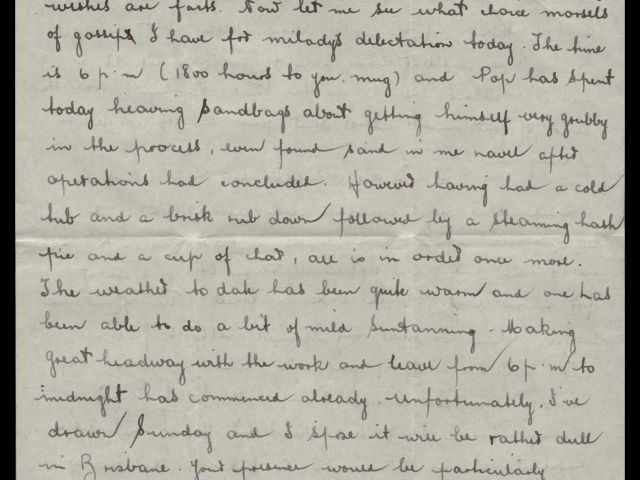 wishes are facts. Now let me see what choice morsels
of gossip I have for milady's delectation today. The time
is 6 p.m (1800 hours to you. mug) and Pop has spent
today heaving sandbags about getting himself very grubby
in the process, even found sand in me navel after
operations had concluded. However having had a cold
tub and a brisk rub down followed by a steaming hash
pie and a cup of chat, all is in order once more.
The weather to date has been quite warm and one has
been able to do a bit of mild suntanning. Making
great headway with the work and leave from 6 p.m to
midnight has commenced already. Unfortunately, I've
drawn Sunday and I spose it will be rather dull
in Brisbane. Your presence would be particularly